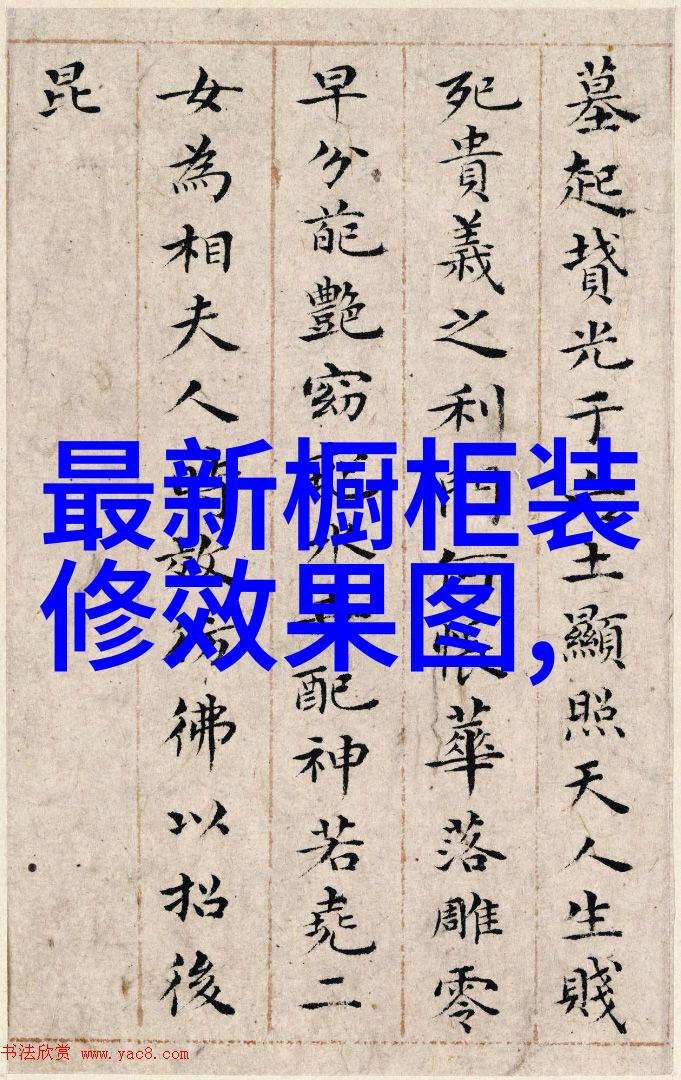 墓起墳光于土顯照天人生賤
死貴義之利門何悵華落雕零
早分葩艷窈窕永世配神若堯二
女為相夫人時效仿佛以招後
昆
最新橱柜装
修效果图,
书法欣赏 www.yac8.com